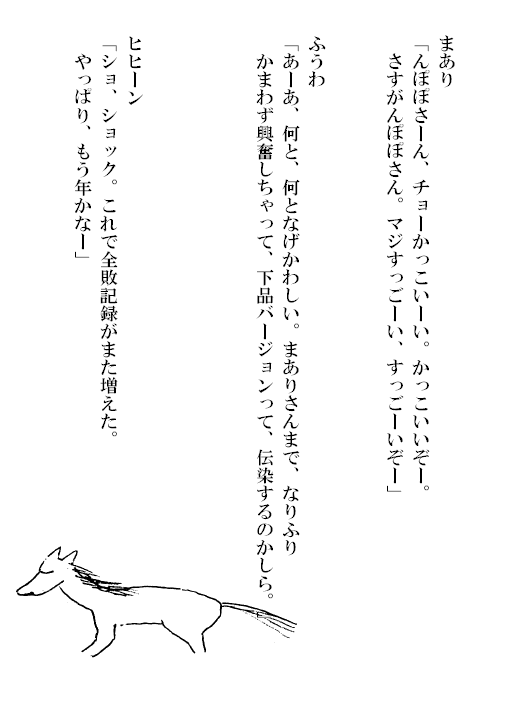 まあり
「んぽぽさーん、チョーかっこいーい。かっこいいぞー。
さすがんぽぽさん。マジすっごーい、すっごーいぞー」
ふうわ
「あーあ、何と、何となげかわしい。まありさんまで、なりふり
かまわず興奮しちゃって、下品バージョンって、伝染するのかしら。
ヒヒーン
「ショ、ショック。これで全敗記録がまた増えた。
やっぱり、もう年かなー」